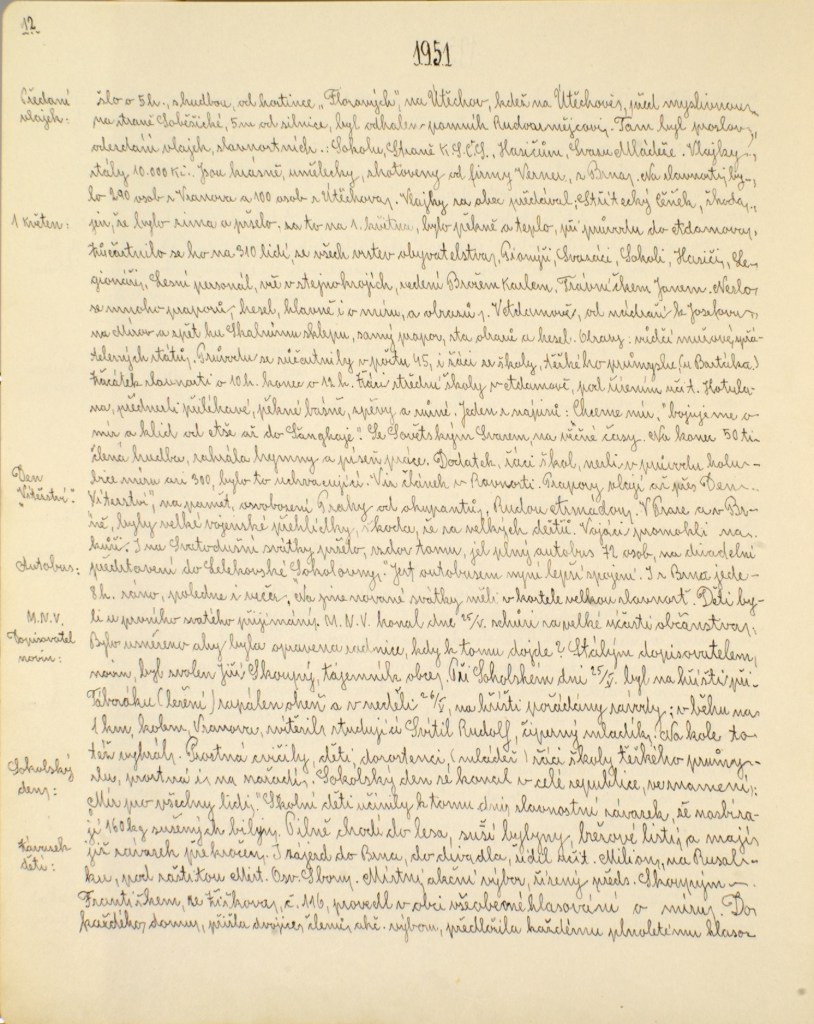 12
1951
Předání vlajek:
šlo o 5 h., s hudbou, od hostince „Floranových", na Útěchov, kdež na Útěchově, před myslivnou
na straně Soběšické, 5 m od silnice, byl odhalen pomník Rudoarmějcovi. Tam byl proslov,
odevzdání vlajek, slavnostních: Sokolu, Straně K.S.Č.S., Hasičům, Svazu Mládeže. Vlajky
stály 10.000 Kč. Jsou krásně, umělecky zhotoveny od firmy Verner, z Brna. Na slavnosti by-
lo 290 osob z Vranova a 100 osob z Útěchova. Vlajky za obec předával Střítecký Čeněk, škoda
1 Květen:
jen, že bylo zima a pršelo, za to na 1. května, bylo pěkně a teplo, při průvodu do Adamova,
zúčastnilo se ho na 310 lidí, ze všech vrstev obyvatelstva, Pionýři, Svazáci, Sokoli, Hasiči, Le-
gionáři, Lesní personál, vše v stejnokrojích, vedení Brožem Karlem, Trávníčkem Janem. Neslo
se mnoho praporů, hesel, hlavně i o míru, a obrazů. V Adamově, od nádraží k Josefovu
na Mírov a zpět ku Skalnímu sklepu, samý prapor, sta obrazů a hesel. Obrazy: vůdčí mužové, přá-
telených států. Průvodu se zúčastnily v počtu 45, i žáci ze školy, těžkého průmyslu (u Bartáka.)
Začátek slavnosti o 10 h. konec o 12 h. Žáci střední školy v Adamově, pod řízením učit. Hotula-
na, přednesli příležavé, pěkné básně, zpěvy a různé. Jeden z nápisů: Chceme mír, „bojujeme o
mír a klid od Aše až do Šanghaje". Se Sovětským Svazem, na věčné časy. Na konec 50 ti
členná hudba, zahrála hymny a píseň práce. Dodatek, žáci škol, nesli v průvodu holu-
Den „Vítěství":
bice míru asi 300, bylo to uchvacující. Viz článek v Rovnosti. Prapory vlají až přes „Den
Vítězství", na paměť, osvobození Prahy od okupantů, Rudou Armádou. V Praze a v Br-
ně, byly velké vojenské přehlídky, škoda, že za velkých dešťů. Vojáci promokli na
kůži. I na Svatodušní svátky pršelo, vzdor tomu, jel plný autobus 72 osob, na divadelní
Autobus:
představení do Lelekovské „Sokolovny." Jest autobusem nyní lepší spojení. I z Brna jede
8 h. ráno, poledne i večer. Na jmenované svátky měli v kostele velkou slavnost. Děti by-
M.N.V.
ly u prvního svatého přijímání. M.N.V. konal dne 25/V. schůzi za velké účasti občanstva.
Dopisovatel novin:
Bylo usneseno aby byla opravena radnice, kdy k tomu dojde? Stálým dopisovatelem
novin, byl zvolen Jiří Skoupý, tajemník obce. Při Sokolském dni 25/V. byl na hřišti při
Táboráku (ležení) zapálen oheň a v neděli 26/V, na hřišti pořádány závody; v běhu na
1 km, kolem, Vranova, zvítězil, studující Svítil Rudolf, čiperný mladík. Na kole to-
též vyhrál. Prostná cvičily, děti, dorostenci, (mládež) žáci školy těžkého průmy-
Sokolský den:
slu, prostná i na nářadí. Sokolský den se konal v celé republice, ve znamení:
„Mír pro všechny lidi." Školní děti učinily k tomu dni, slavnostní závazek, že nasbíra-
jí 160 kg sušených bylin. Pilně chodí do lesa, suší byliny, březové listí, a mají
Závazek dětí:
již závazek překročen. I zájezd do Brna, do divadla, řídil učit. Milion, na Rusal-
ku, pod záštitou Míst. Osv. Sboru. Místní akční výbor, řízený předs. Skoupým
Františkem, ze Žižkova, č. 116, provedl v obci všeobecné hlasování o míru. Do
každého domu, přišla dvojice členů akč. výboru, předložila každému plnoletému hlaso-